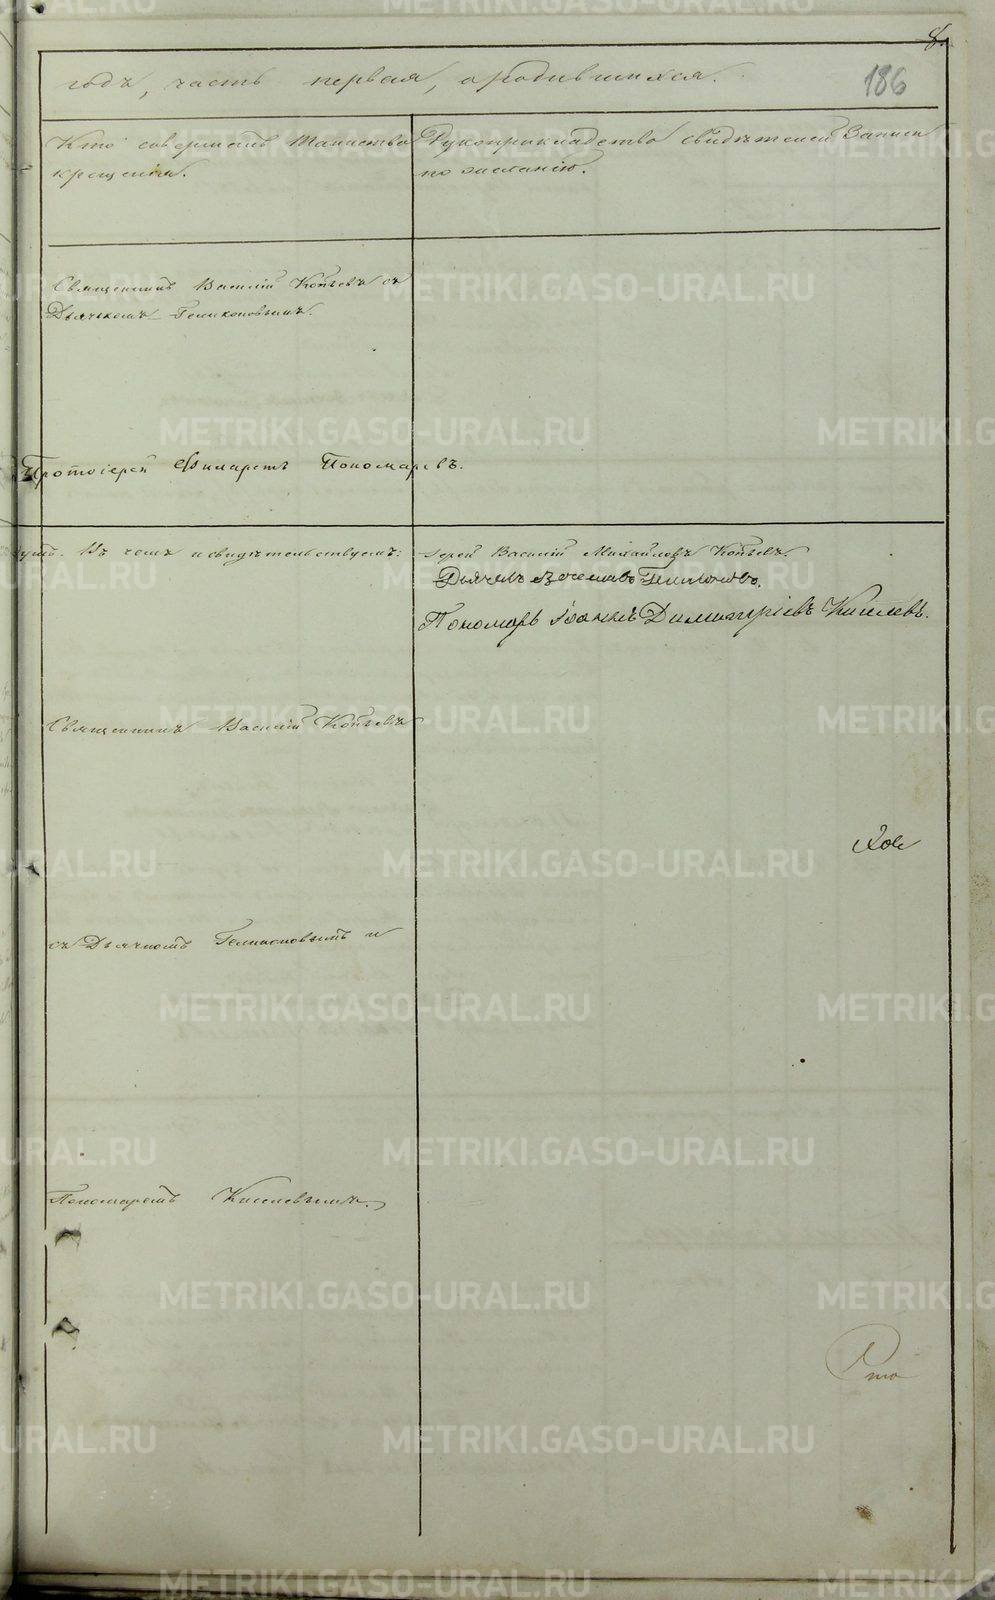 8.
186
годъ, часть первая, о родившихся.
Кто совершалъ Таинство
крещенія.
Рукоприкладство свидѣтелей Записи
по желанію.
Священникъ Василій Копьевъ съ
Дьячкомъ Геликоновымъ.
Протоіерей Филаретъ Пономаревъ.
Въ чемъ и свидѣтельствуемъ:
Іерей Василій Михайловъ Копьевъ.
Дьячекъ Геликоновъ.
Пономарь Іоаннъ Димитріевъ Киселевъ.
Священникъ Василій Копьевъ
съ Дьячкомъ Геликоновымъ и
Пономаремъ Киселевымъ.
METRIKI.GASO-URAL.RU